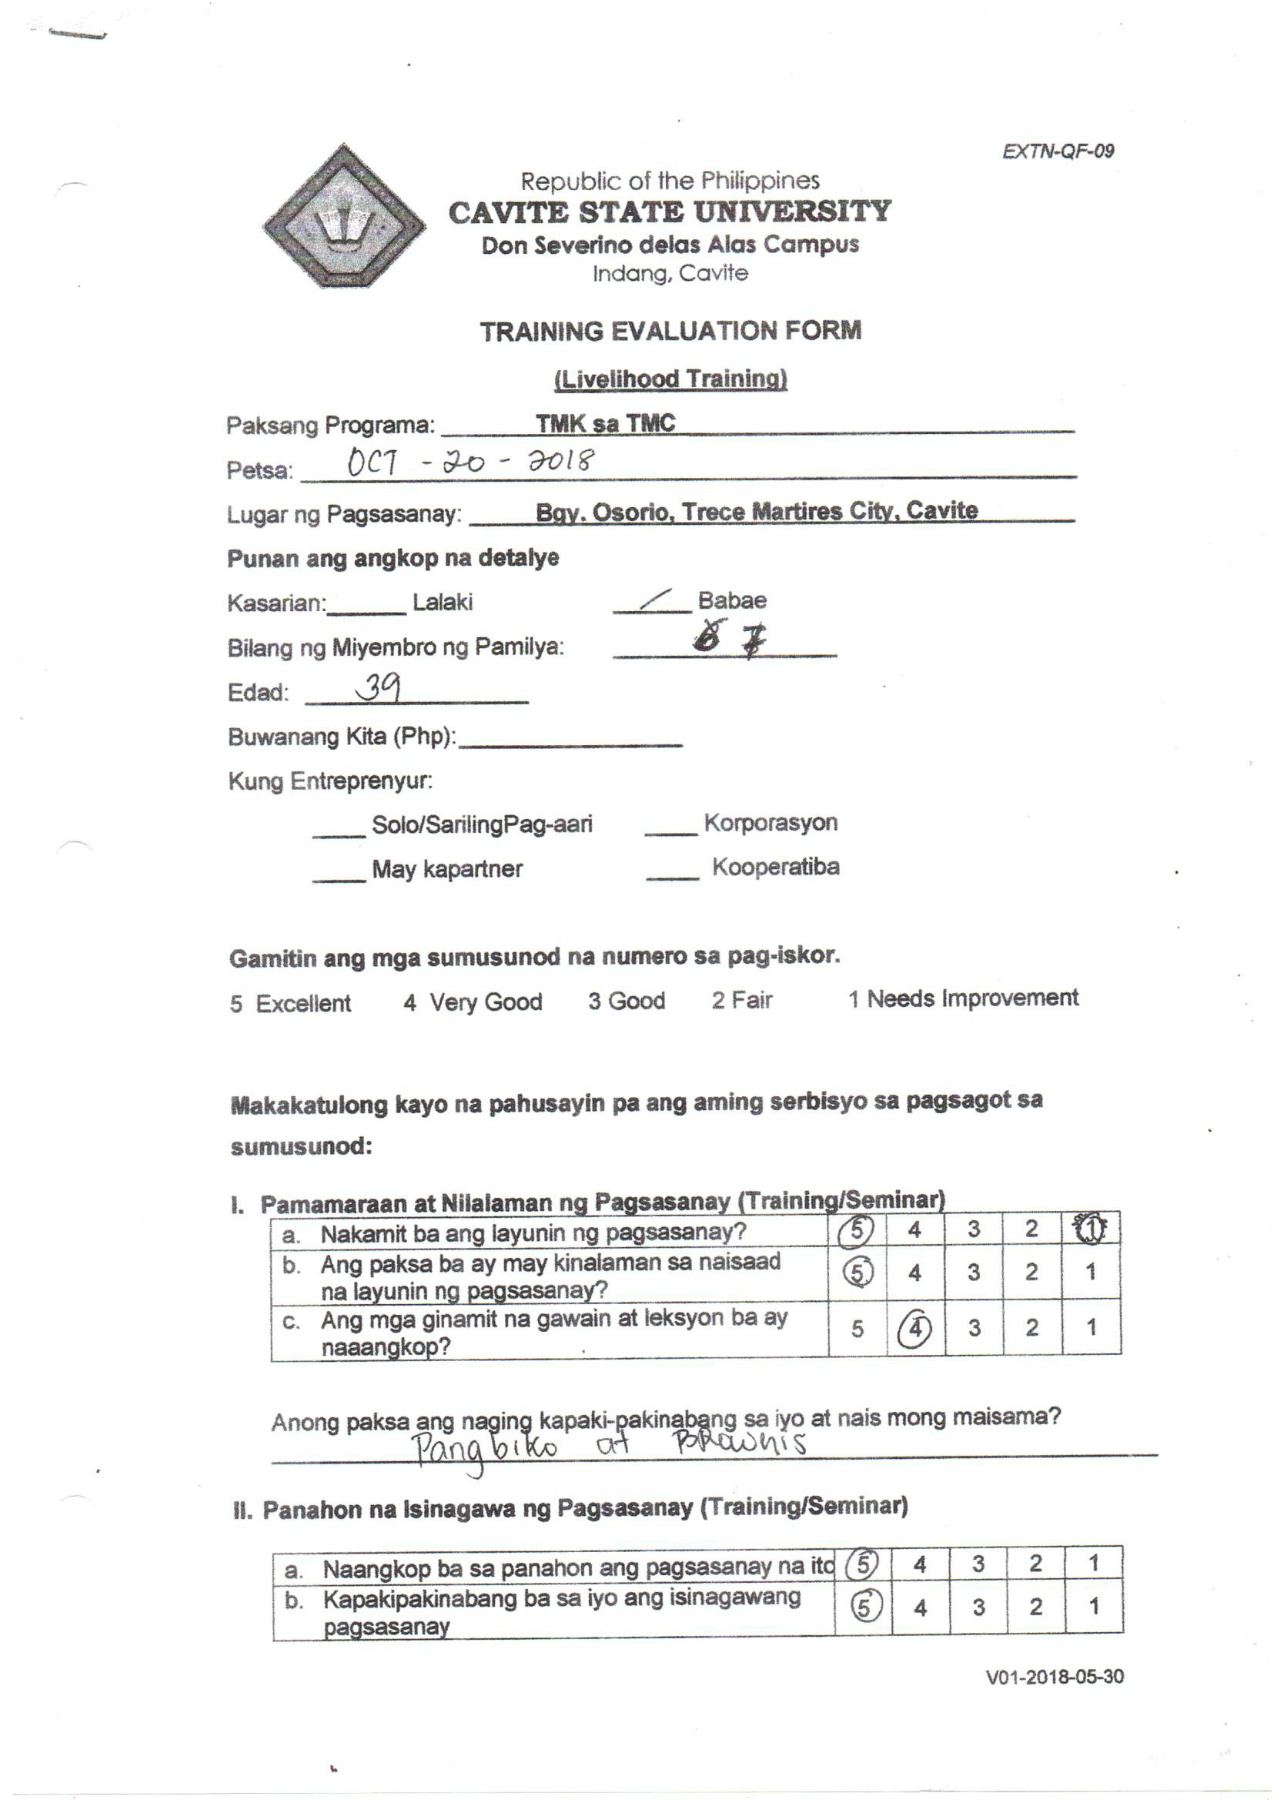 EXTN-QF-09
Republic of the Philippines
CAVITE STATE UNIVERSITY
Don Severino delas Alas Campus
Indang, Cavite
TRAINING EVALUATION FORM
(Livelihood Training)
Paksang Programa: TMK sa TMC
Petsa: OCT - 20 - 2018
Lugar ng Pagsasanay: Bgy. Osorio, Trece Martires City, Cavite
Punan ang angkop na detalye
Kasarian: Lalaki / Babae
Bilang ng Miyembro ng Pamilya: 7
Edad: 39
Buwanang Kita (Php):
Kung Entreprenyur:
Solo/SarilingPag-aari Korporasyon
May kapartner Kooperatiba
Gamitin ang mga sumusunod na numero sa pag-iskor.
5 Excellent 4 Very Good 3 Good 2 Fair 1 Needs Improvement
Makakatulong kayo na pahusayin pa ang aming serbisyo sa pagsagot sa
sumusunod:
I. Pamamaraan at Nilalaman ng Pagsasanay (Training/Seminar)
a. Nakamit ba ang layunin ng pagsasanay? 5 4 3 2 1
b. Ang paksa ba ay may kinalaman sa naisaad
na layunin ng pagsasanay? 5 4 3 2 1
c. Ang mga ginamit na gawain at leksyon ba ay
naaangkop? 5 4 3 2 1
Anong paksa ang naging kapaki-pakinabang sa iyo at nais mong maisama?
Pangbiko at BRawnis
II. Panahon na Isinagawa ng Pagsasanay (Training/Seminar)
a. Naangkop ba sa panahon ang pagsasanay na ito 5 4 3 2 1
b. Kapakipakinabang ba sa iyo ang isinagawang
pagsasanay 5 4 3 2 1
V01-2018-05-30